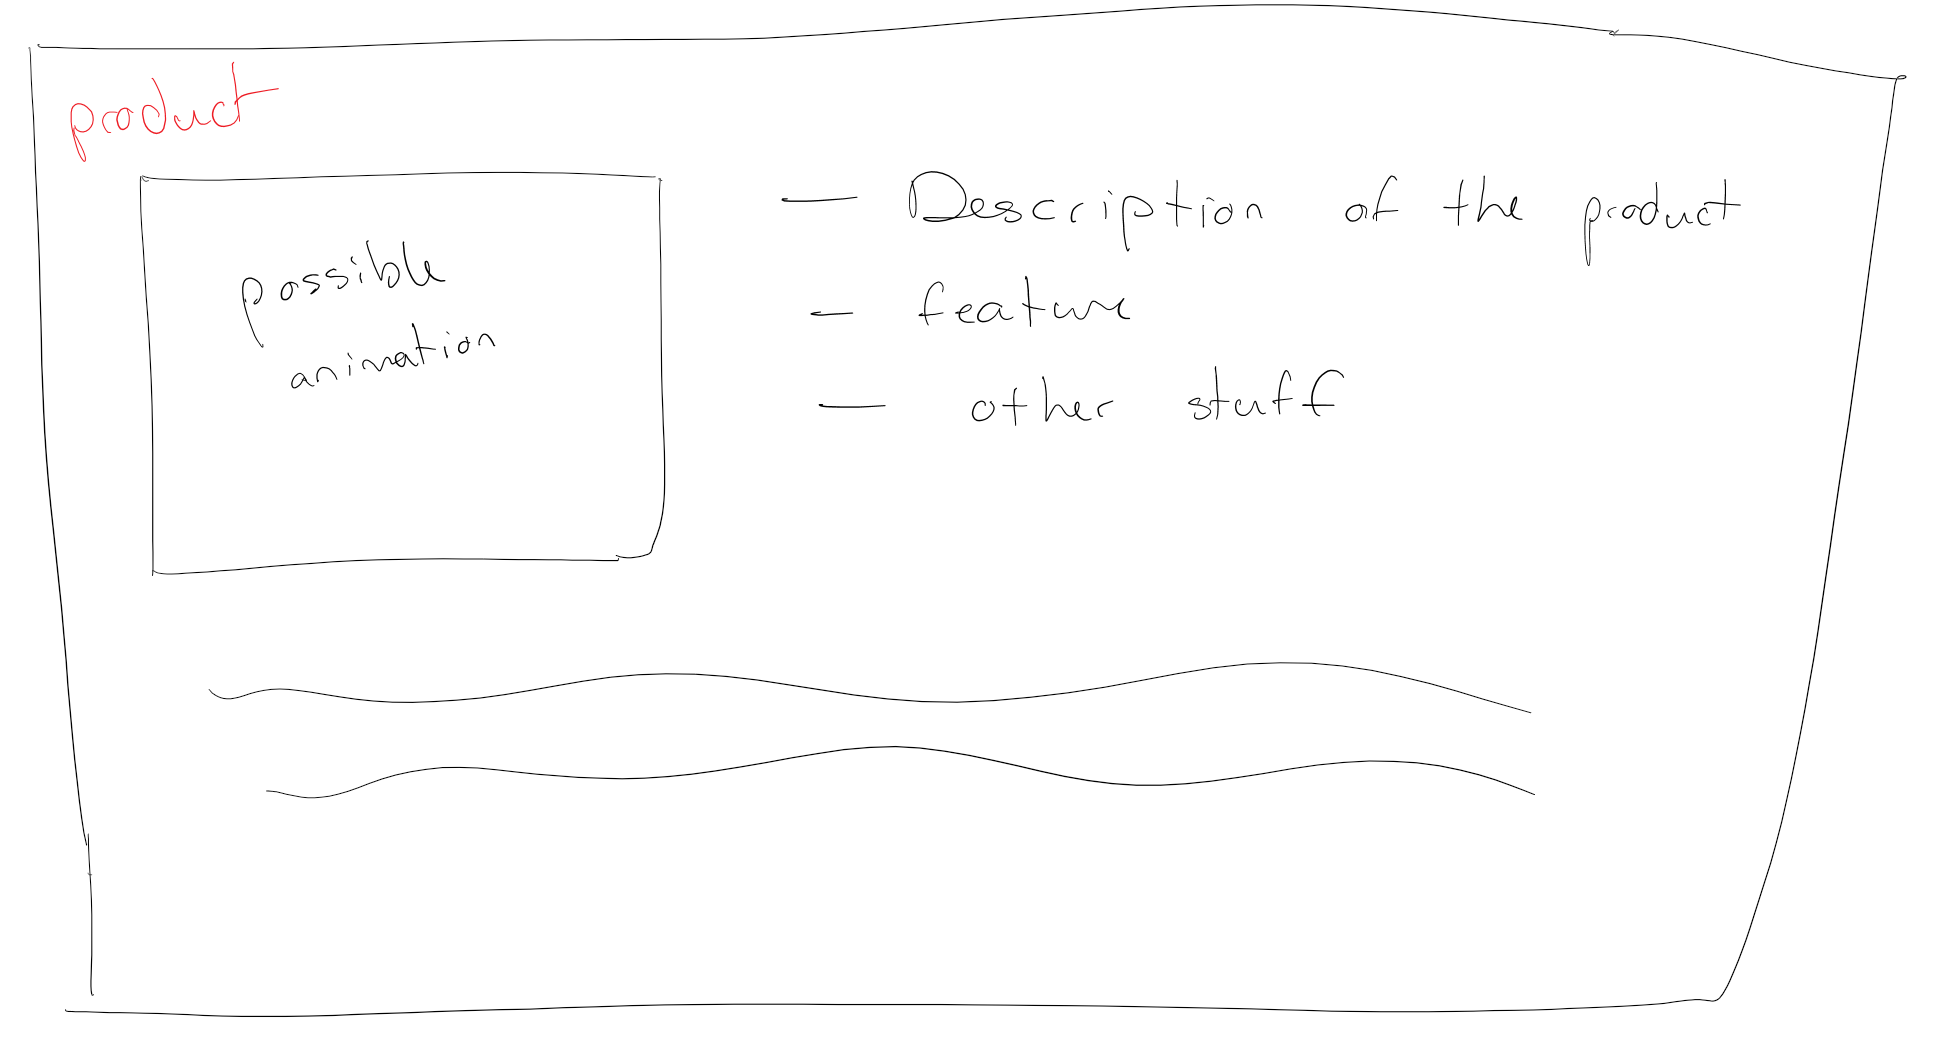 product
possible
animation
- Description of the product
- feature
- other stuff